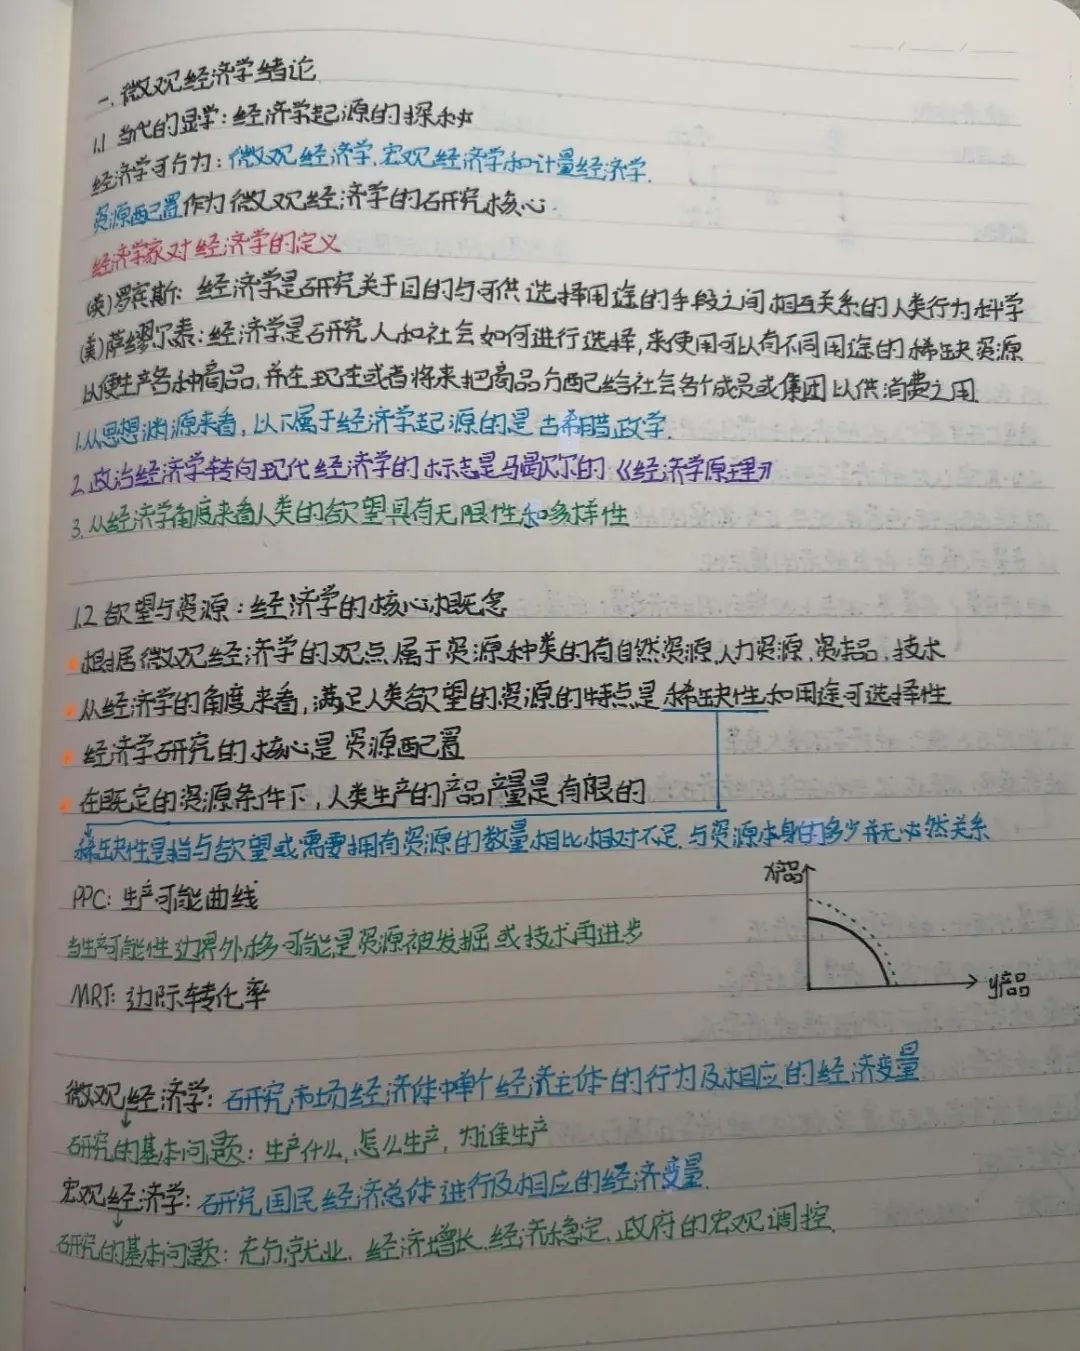 一. 微观经济学绪论
1.1 当代的显学：经济学起源的探秘
经济学可分为：微观经济学、宏观经济学和计量经济学.
资源配置作为微观经济学的研究核心.
经济学家对经济学的定义
(英)罗宾斯：经济学是研究关于目的与可供选择用途的手段之间相互关系的人类行为科学
(美)萨缪尔森：经济学是研究人和社会如何进行选择，来使用可以有不同用途的稀缺资源
以便生产各种商品，并在现在或者将来把商品分配给社会各个成员或集团以供消费之用.
1.从思想渊源来看，以下属于经济学起源的是古希腊政学.
2.政治经济学转向现代经济学的标志是马歇尔的《经济学原理》
3.从经济学角度来看人类的欲望具有无限性和多样性
1.2 欲望与资源：经济学的核心概念
根据微观经济学的观点属于资源种类的有自然资源、人力资源、资本品、技术
从经济学的角度来看，满足人类欲望的资源的特点是稀缺性和用途可选择性
经济学研究的核心是资源配置
在既定的资源条件下，人类生产的产品产量是有限的
稀缺性是指与欲望或需要拥有资源的数量相比相对不足，与资源本身的多少并无必然关系
X产品
PPC：生产可能曲线
当生产可能性边界外移可能是资源被发掘或技术再进步
MRT：边际转化率
y产品
微观经济学：研究市场经济体中单个经济主体的行为及相应的经济变量
研究的基本问题：生产什么、怎么生产，为谁生产
宏观经济学：研究国民经济总体进行及相应的经济变量.
研究的基本问题：充分就业、经济增长、经济稳定、政府的宏观调控.